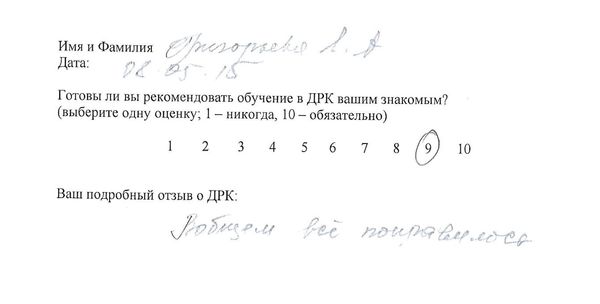 Имя и Фамилия Григорьева Л. А
Дата: 08.05.15
Готовы ли вы рекомендовать обучение в ДРК вашим знакомым?
(выберите одну оценку; 1 – никогда, 10 – обязательно)
1 2 3 4 5 6 7 8 9 10
Ваш подробный отзыв о ДРК:
Вобщем всё понравилось